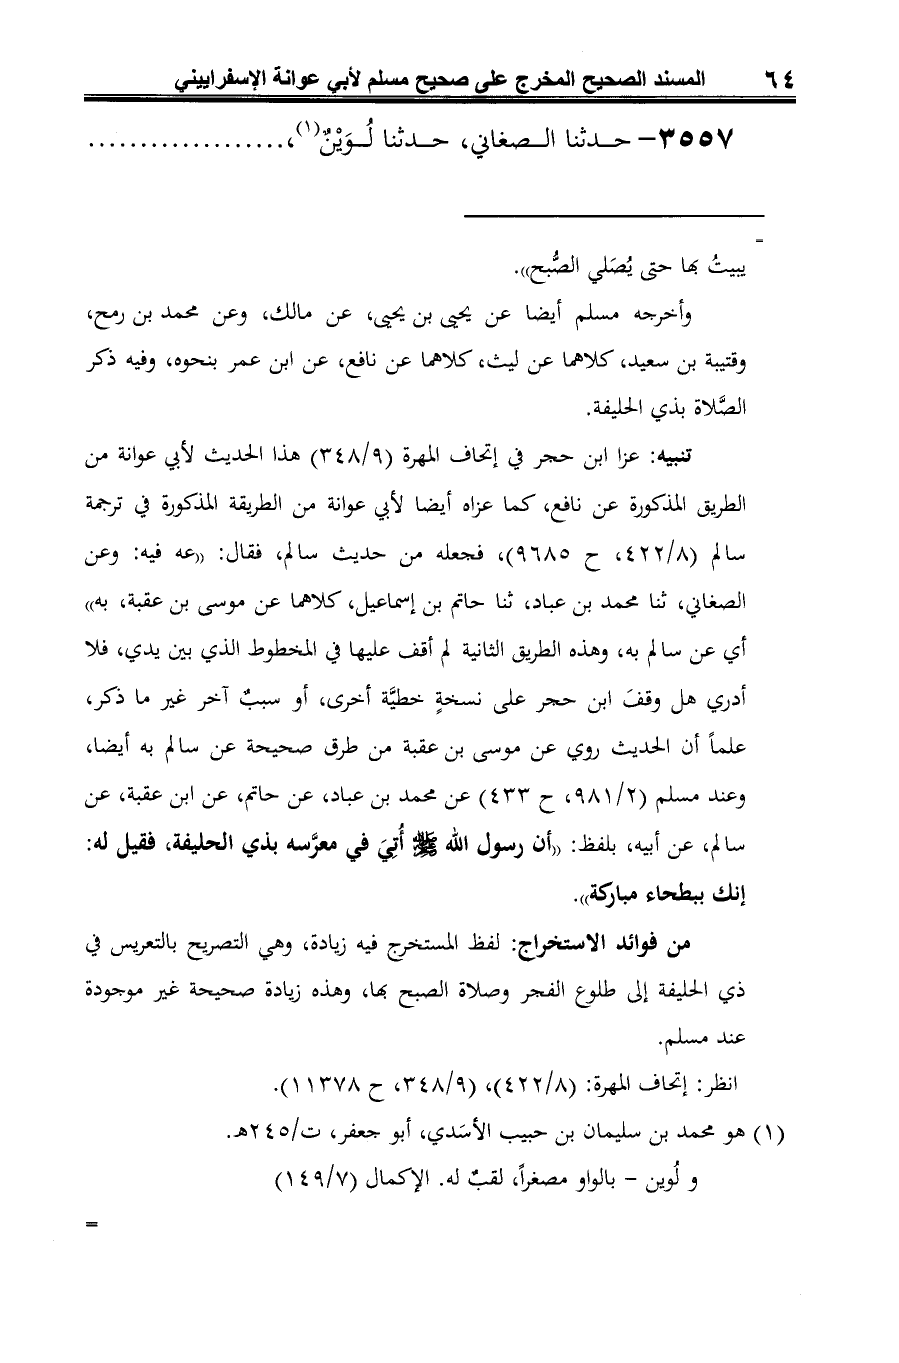 ٦٤ المسند الصحيح المخرج على صحيح مسلم لأبي عوانة الإسفراييني
٣٥٥٧- حـدثنا الـصغاني، حـدثنا لُـوَيْنٌ(١)، ...................
=
يبيتُ بها حتى يُصَلي الصُّبح)).
وأخرجه مسلم أيضا عن يحيى بن يحيى، عن مالك، وعن محمد بن رمح،
وقتيبة بن سعيد، كلاهما عن ليث، كلاهما عن نافع، عن ابن عمر بنحوه، وفيه ذكر
الصَّلاة بذي الحليفة.
تنبيه: عزا ابن حجر في إتحاف المهرة (٣٤٨/٩) هذا الحديث لأبي عوانة من
الطريق المذكورة عن نافع، كما عزاه أيضا لأبي عوانة من الطريقة المذكورة في ترجمة
سالم (٤٢٢/٨، ح ٩٦٨٥)، فجعله من حديث سالم، فقال: ((عه فيه: وعن
الصغاني، ثنا محمد بن عباد، ثنا حاتم بن إسماعيل، كلاهما عن موسى بن عقبة، به))
أي عن سالم به، وهذه الطريق الثانية لم أقف عليها في المخطوط الذي بين يدي، فلا
أدري هل وقفَ ابن حجر على نسخةٍ خطيَّة أخرى، أو سببٌ آخر غير ما ذكر،
علماً أن الحديث روي عن موسى بن عقبة من طرق صحيحة عن سالم به أيضا،
وعند مسلم (٩٨١/٢، ح ٤٣٣) عن محمد بن عباد، عن حاتم، عن ابن عقبة، عن
سالم، عن أبيه، بلفظ: ((أن رسول الله ﷺ أُتِيَ في معرَّسه بذي الحليفة، فقيل له:
إنك ببطحاء مباركة)).
من فوائد الاستخراج: لفظ المستخرج فيه زيادة، وهي التصريح بالتعريس في
ذي الحليفة إلى طلوع الفجر وصلاة الصبح بها، وهذه زيادة صحيحة غير موجودة
عند مسلم.
انظر: إتحاف المهرة: (٤٢٢/٨)، (٣٤٨/٩، ح ١١٣٧٨).
(١) هو محمد بن سليمان بن حبيب الأسَدي، أبو جعفر، ت/٢٤٥هـ.
و لُوين - بالواو مصغراً، لقبٌ له. الإكمال (١٤٩/٧)
=